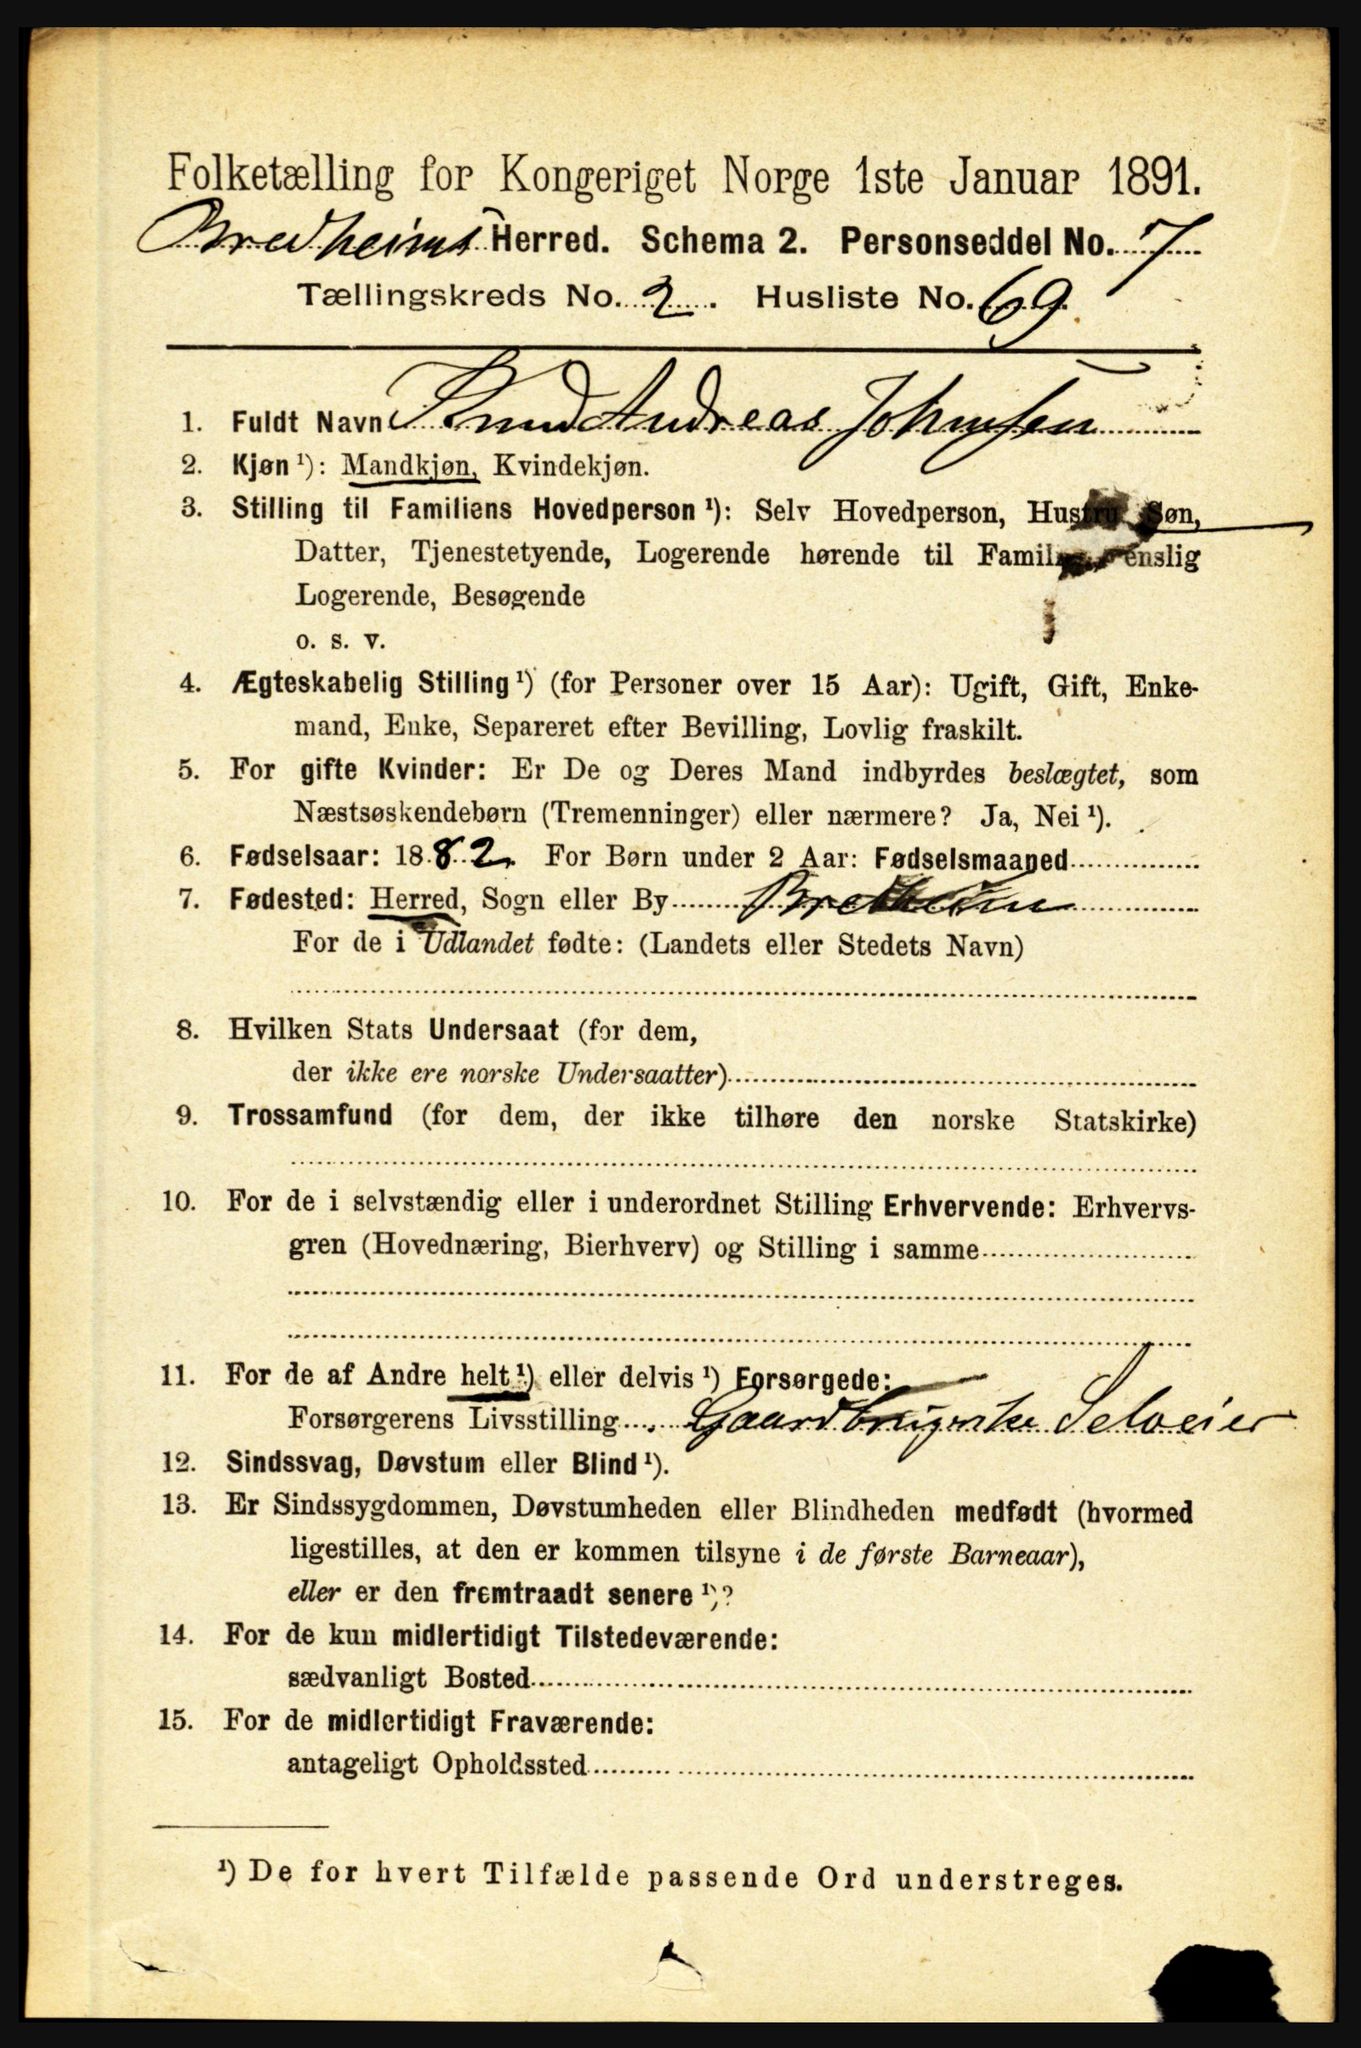 Folketælling for Kongeriget Norge 1ste Januar 1891.
Bredheims Herred. Schema 2. Personseddel No. 7
Tællingskreds No. 2. Husliste No. 69.
1. Fuldt Navn Knud Andreas Johnsen
2. Kjøn ¹): Mandkjøn, Kvindekjøn.
3. Stilling til Familiens Hovedperson ¹): Selv Hovedperson, Hustru, Søn,
Datter, Tjenestetyende, Logerende hørende til Familien, enslig
Logerende, Besøgende
o. s. v.
4. Ægteskabelig Stilling ¹) (for Personer over 15 Aar): Ugift, Gift, Enke-
mand, Enke, Separeret efter Bevilling, Lovlig fraskilt.
5. For gifte Kvinder: Er De og Deres Mand indbyrdes beslægtet, som
Næstsøskendebørn (Tremenninger) eller nærmere? Ja, Nei ¹).
6. Fødselsaar: 1882 For Børn under 2 Aar: Fødselsmaaned
7. Fødested: Herred, Sogn eller By Bretheim
For de i Udlandet fødte: (Landets eller Stedets Navn)
8. Hvilken Stats Undersaat (for dem,
der ikke ere norske Undersaatter)
9. Trossamfund (for dem, der ikke tilhøre den norske Statskirke)
10. For de i selvstændig eller i underordnet Stilling Erhvervende: Erhvervs-
gren (Hovednæring, Bierhverv) og Stilling i samme
11. For de af Andre helt ¹) eller delvis ¹) Forsørgede:
Forsørgerens Livsstilling Selveier
12. Sindssvag, Døvstum eller Blind ¹).
13. Er Sindssygdommen, Døvstumheden eller Blindheden medfødt (hvormed
ligestilles, at den er kommen tilsyne i de første Barneaar),
eller er den fremtraadt senere ¹)?
14. For de kun midlertidigt Tilstedeværende:
sædvanligt Bosted
15. For de midlertidigt Fraværende:
antageligt Opholdssted
¹) De for hvert Tilfælde passende Ord understreges.